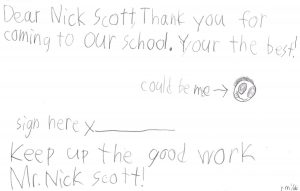 Dear Nick Scott, Thank you for
coming to our school. Your the best!
could be me →
sign here x
Keep up the good work
Mr. Nick Scott!